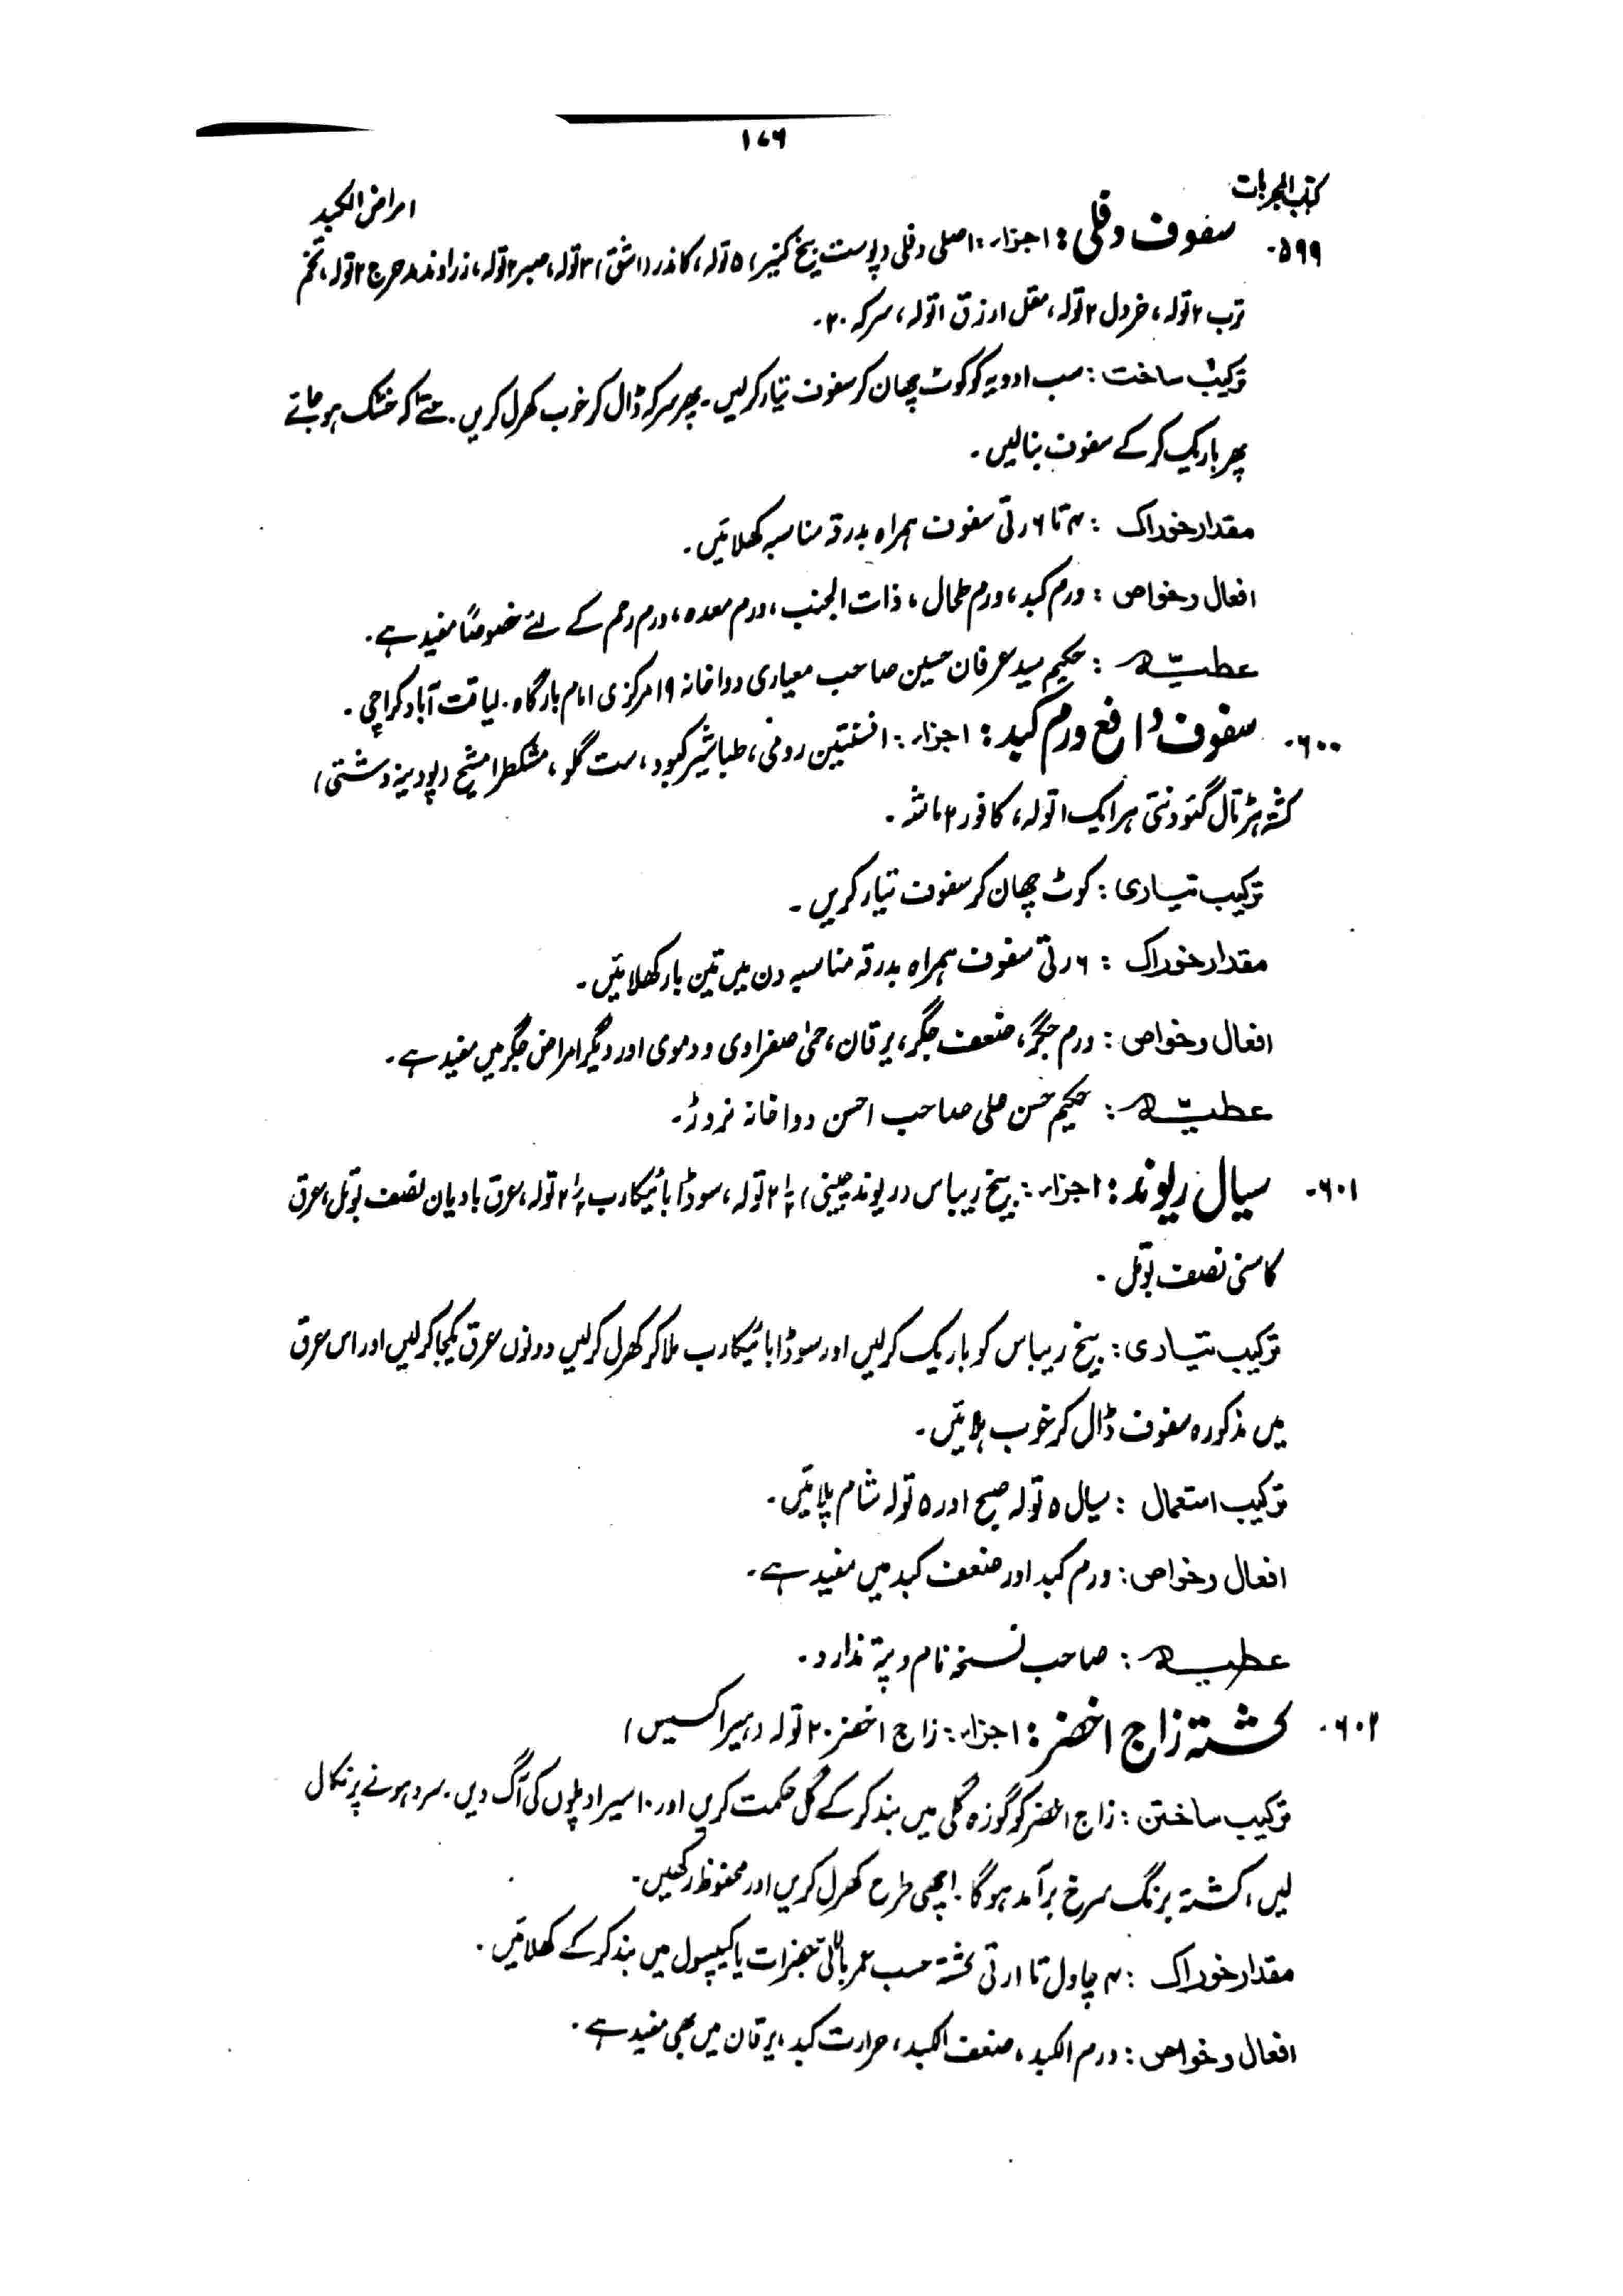 ۱۷۶
کتاب المجربات
امراض الکبد
۵۹۹۔ سفوف دفلی: اجزاء: اصلی دفلی (پوست بیخ کنیر) ۵ تولہ، کاندر (اشق) ۳ تولہ، صبر ۲ تولہ، زراوند مدحرج ۲ تولہ، تخم
ترب ۲ تولہ، خردل ۲ تولہ، مقل ارزق ۱ تولہ، سرکہ ۲۰۔
ترکیب ساخت: سب ادویہ کو کوٹ چھان کر سفوف تیار کرلیں۔ پھر سرکہ ڈال کر خوب کھرل کریں۔ حتےٰ کہ خشک ہو جائے
پھر باریک کرکے سفوف بنالیں۔
مقدار خوراک: ۴ تا ۶ رتی سفوف ہمراہ بدرقہ مناسبہ کھلائیں۔
افعال و خواص: ورم کبد، ورم طحال، ذات الجنب، ورم معدہ، ورم رحم کے لئے خصوصاً مفید ہے۔
عطیّہ: حکیم سید عرفان حسین صاحب معیاری دواخانہ ۱۹ مرکزی امام بارگاہ۔ لیاقت آباد کراچی۔
۶۰۰۔ سفوف دافع ورم کبد: اجزاء: افسنتین رومی، طباشیر کبود، ست گلو، مشکطرامشیح (پودینہ دشتی)
کشتہ ہڑتال گئودنتی ہر ایک ۱ تولہ، کافور ۲ ماشہ۔
ترکیب تیاری: کوٹ چھان کر سفوف تیار کریں۔
مقدار خوراک: ۶ رتی سفوف ہمراہ بدرقہ مناسبہ دن میں تین بار کھلائیں۔
افعال و خواص: ورم جگر، ضعف جگر، یرقان، حمیٰ صفراوی و دموی اور دیگر امراض جگر میں مفید ہے۔
عطیّہ: حکیم حسن علی صاحب احسن دواخانہ نروڑ۔
۶۰۱۔ سیال ریوند: اجزاء: بیخ ریباس (ریوند چینی) ۲½ تولہ، سوڈا بائیکارب ۲½ تولہ، عرق بادیان نصف بوتل، عرق
کاسنی نصف بوتل۔
ترکیب تیاری: بیخ ریباس کو باریک کرلیں اور سوڈا بائیکارب ملا کر کھرل کرلیں دونوں عرق یکجا کرلیں اور اس عرق
میں مذکورہ سفوف ڈال کر خوب ہلائیں۔
ترکیب استعمال: سیال ۵ تولہ صبح اور ۵ تولہ شام پلائیں۔
افعال و خواص: ورم کبد اور ضعف کبد میں مفید ہے۔
عطیہ: صاحب نسخہ نام و پتہ ندارد۔
۶۰۲۔ کشتہ زاج اخضر: اجزاء: زاج اخضر ۲۰ تولہ (ہیرا کسیس)
ترکیب ساختن: زاج اخضر کو گوزہ گلی میں بند کرکے گل حکمت کریں اور ۱۰ سیر اوپلوں کی آگ دیں۔ سرد ہونے پر نکال
لیں، کشتہ برنگ سرخ برآمد ہوگا۔ اچھی طرح کھرل کریں اور محفوظ رکھیں۔
مقدار خوراک: ۴ چاول تا ۱ رتی کشتہ حسب عمر بالائی یا کیپسول میں بند کرکے کھلائیں۔
افعال و خواص: ورم الکبد، ضعف الکبد، حرارت کبد، یرقان میں بھی مفید ہے۔